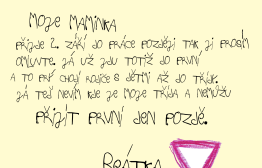 MOJE MAMINKA
PŘIJDE 2. ZÁŘÍ DO PRÁCE POZDĚJI TAK JI PROSÍM
OMLUVTE. JÁ UŽ JDU TOTIŽ DO PRVNÍ
A TO PRÝ CHODÍ RODIČE S DĚTMI AŽ DO TŘÍDY.
JÁ TEĎ NEVÍM KDE JE MOJE TŘÍDA A NEMŮŽU
PŘIJÍT PRVNÍ DEN POZDĚ.
BEÁTKA